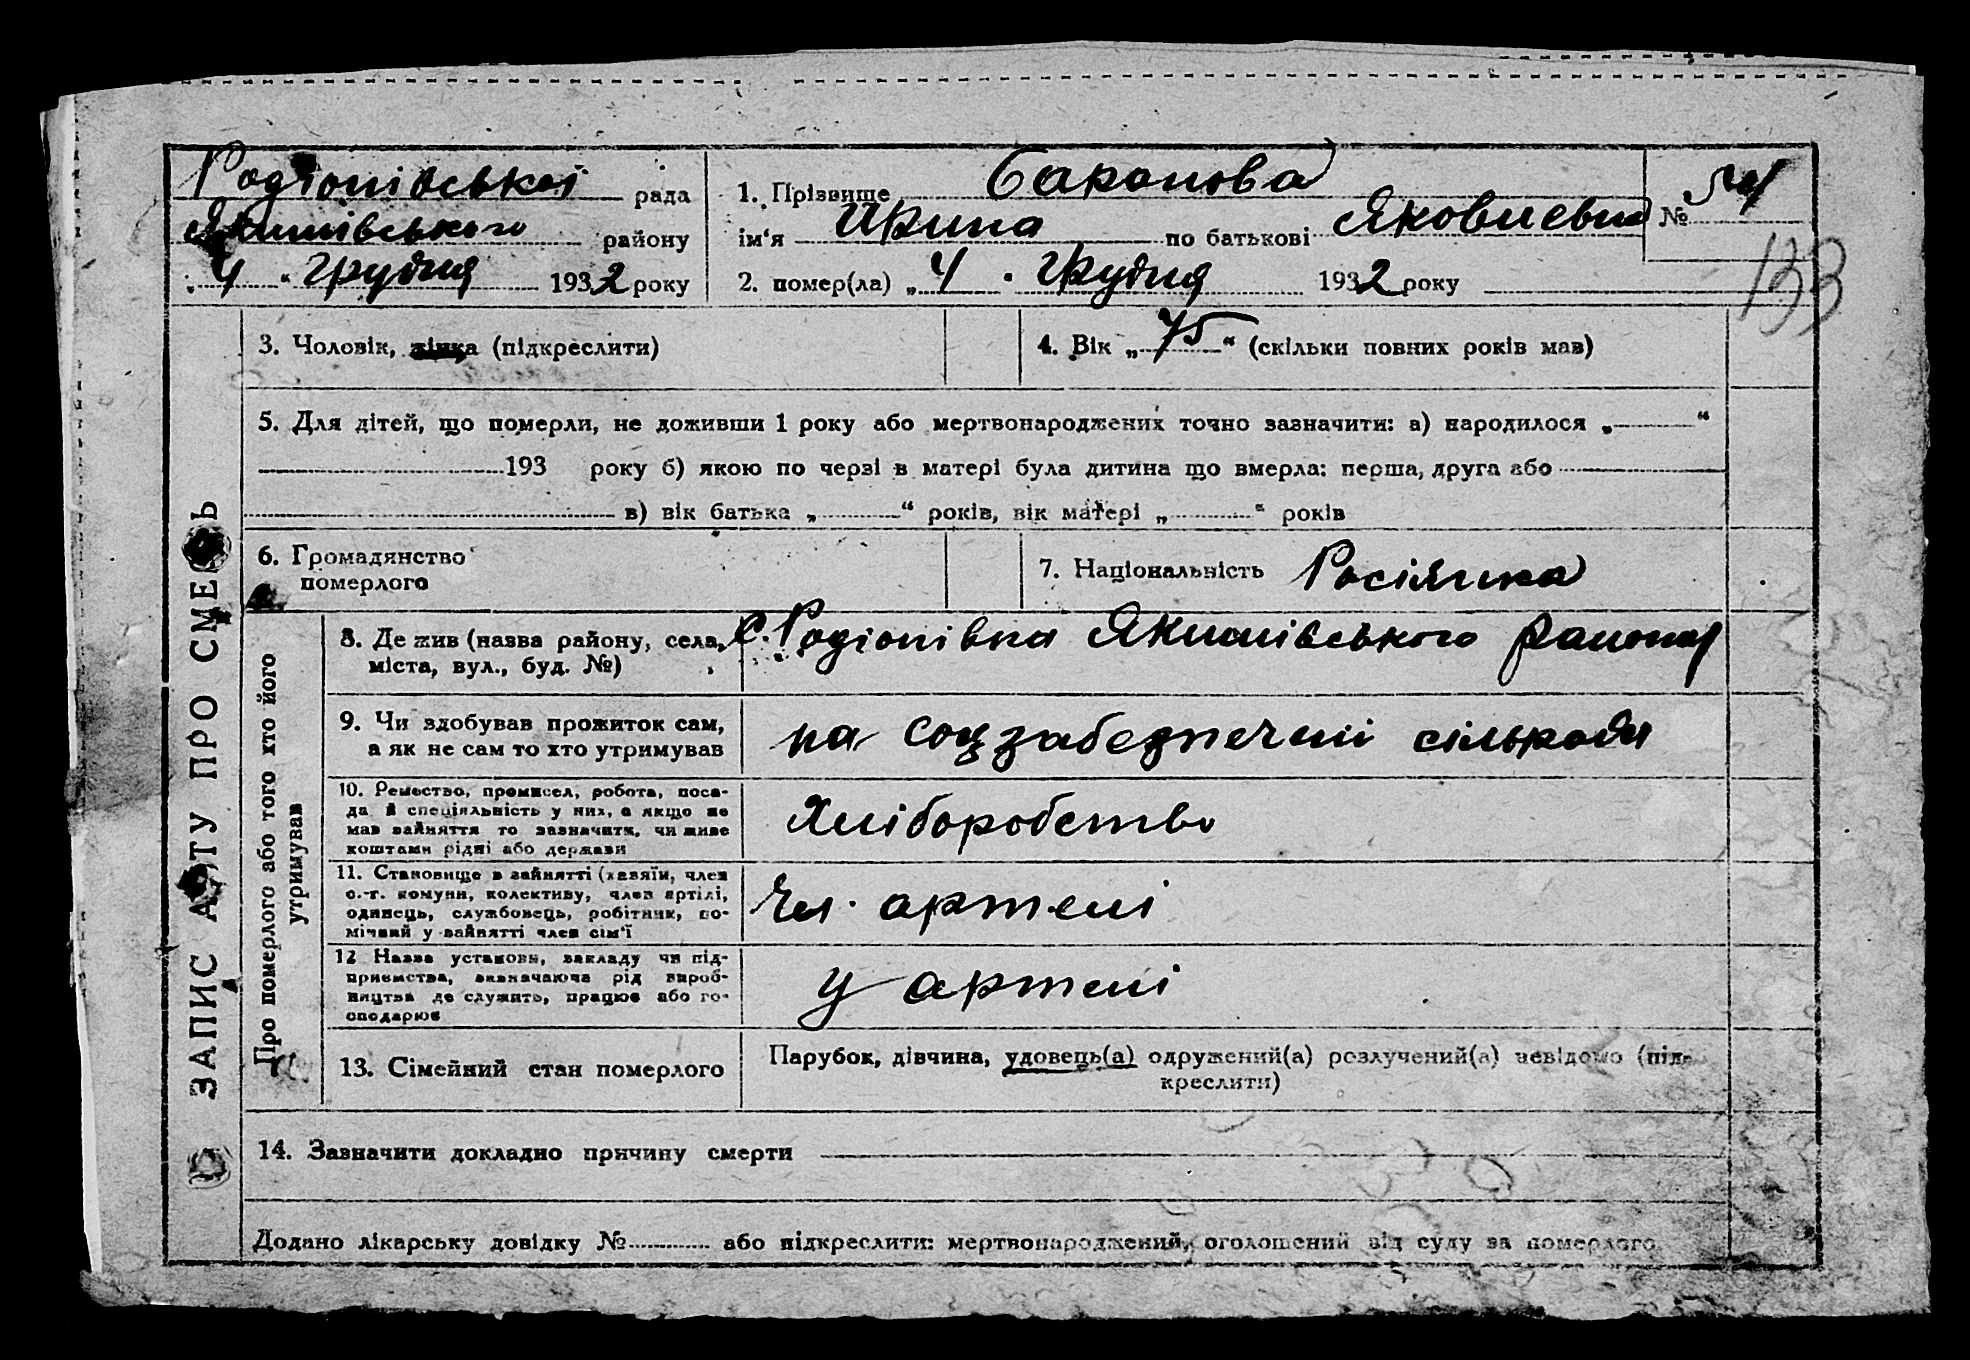 Родіонівської рада
Якимівського району
„4“ грудня 1932 року
1. Прізвище Сапонова
ім‘я Ирина по батькові Яковлевна
№ 54
133
2. помер(ла) „4“ грудня 1932 року
ЗАПИС АКТУ ПРО СМЕРТЬ
3. Чоловік, жінка (підкреслити)
4. Вік „75“ (скільки повних років мав)
5. Для дітей, що померли, не доживши 1 року або мертвонароджених точно зазначити: а) народилося „ “
193 року б) якою по черзі в матері була дитина що вмерла: перша, друга або
в) вік батька „ “ років, вік матері „ “ років
6. Громадянство
померлого
7. Національність Росіянка
Про померлого або того хто його
утримував
8. Де жив (назва району, села,
міста, вул., буд. №)
с. Родіонівка Якимівського району
9. Чи здобував прожиток сам,
а як не сам то хто утримував
на соцзабезпечині сількоди
10. Ремество, промисел, робота, поса-
да й спеціяльність у них, а якщо не
мав зайняття то зазначити, чи живе
коштами рідні або держави
Хліборобство
11. Становище в зайнятті (хазяїн, член
с.-г. комуни, колективу, член артілі,
одинець, службовець, робітник, по-
мічний у зайнятті член сім‘ї
Чл. артелі
12 Назва установи, закладу чи під-
приємства, зазначаючи рід вироб-
ництва де служить, працює або го-
сподарює
у артелі
13. Сімейний стан померлого
Парубок, дівчина, удовець(а) одружений(а) розлучений(а) невідомо (під-
креслити)
14. Зазначити докладно причину смерти
Додано лікарську довідку № або підкреслити: мертвонароджений, оголошений від суду за померлого